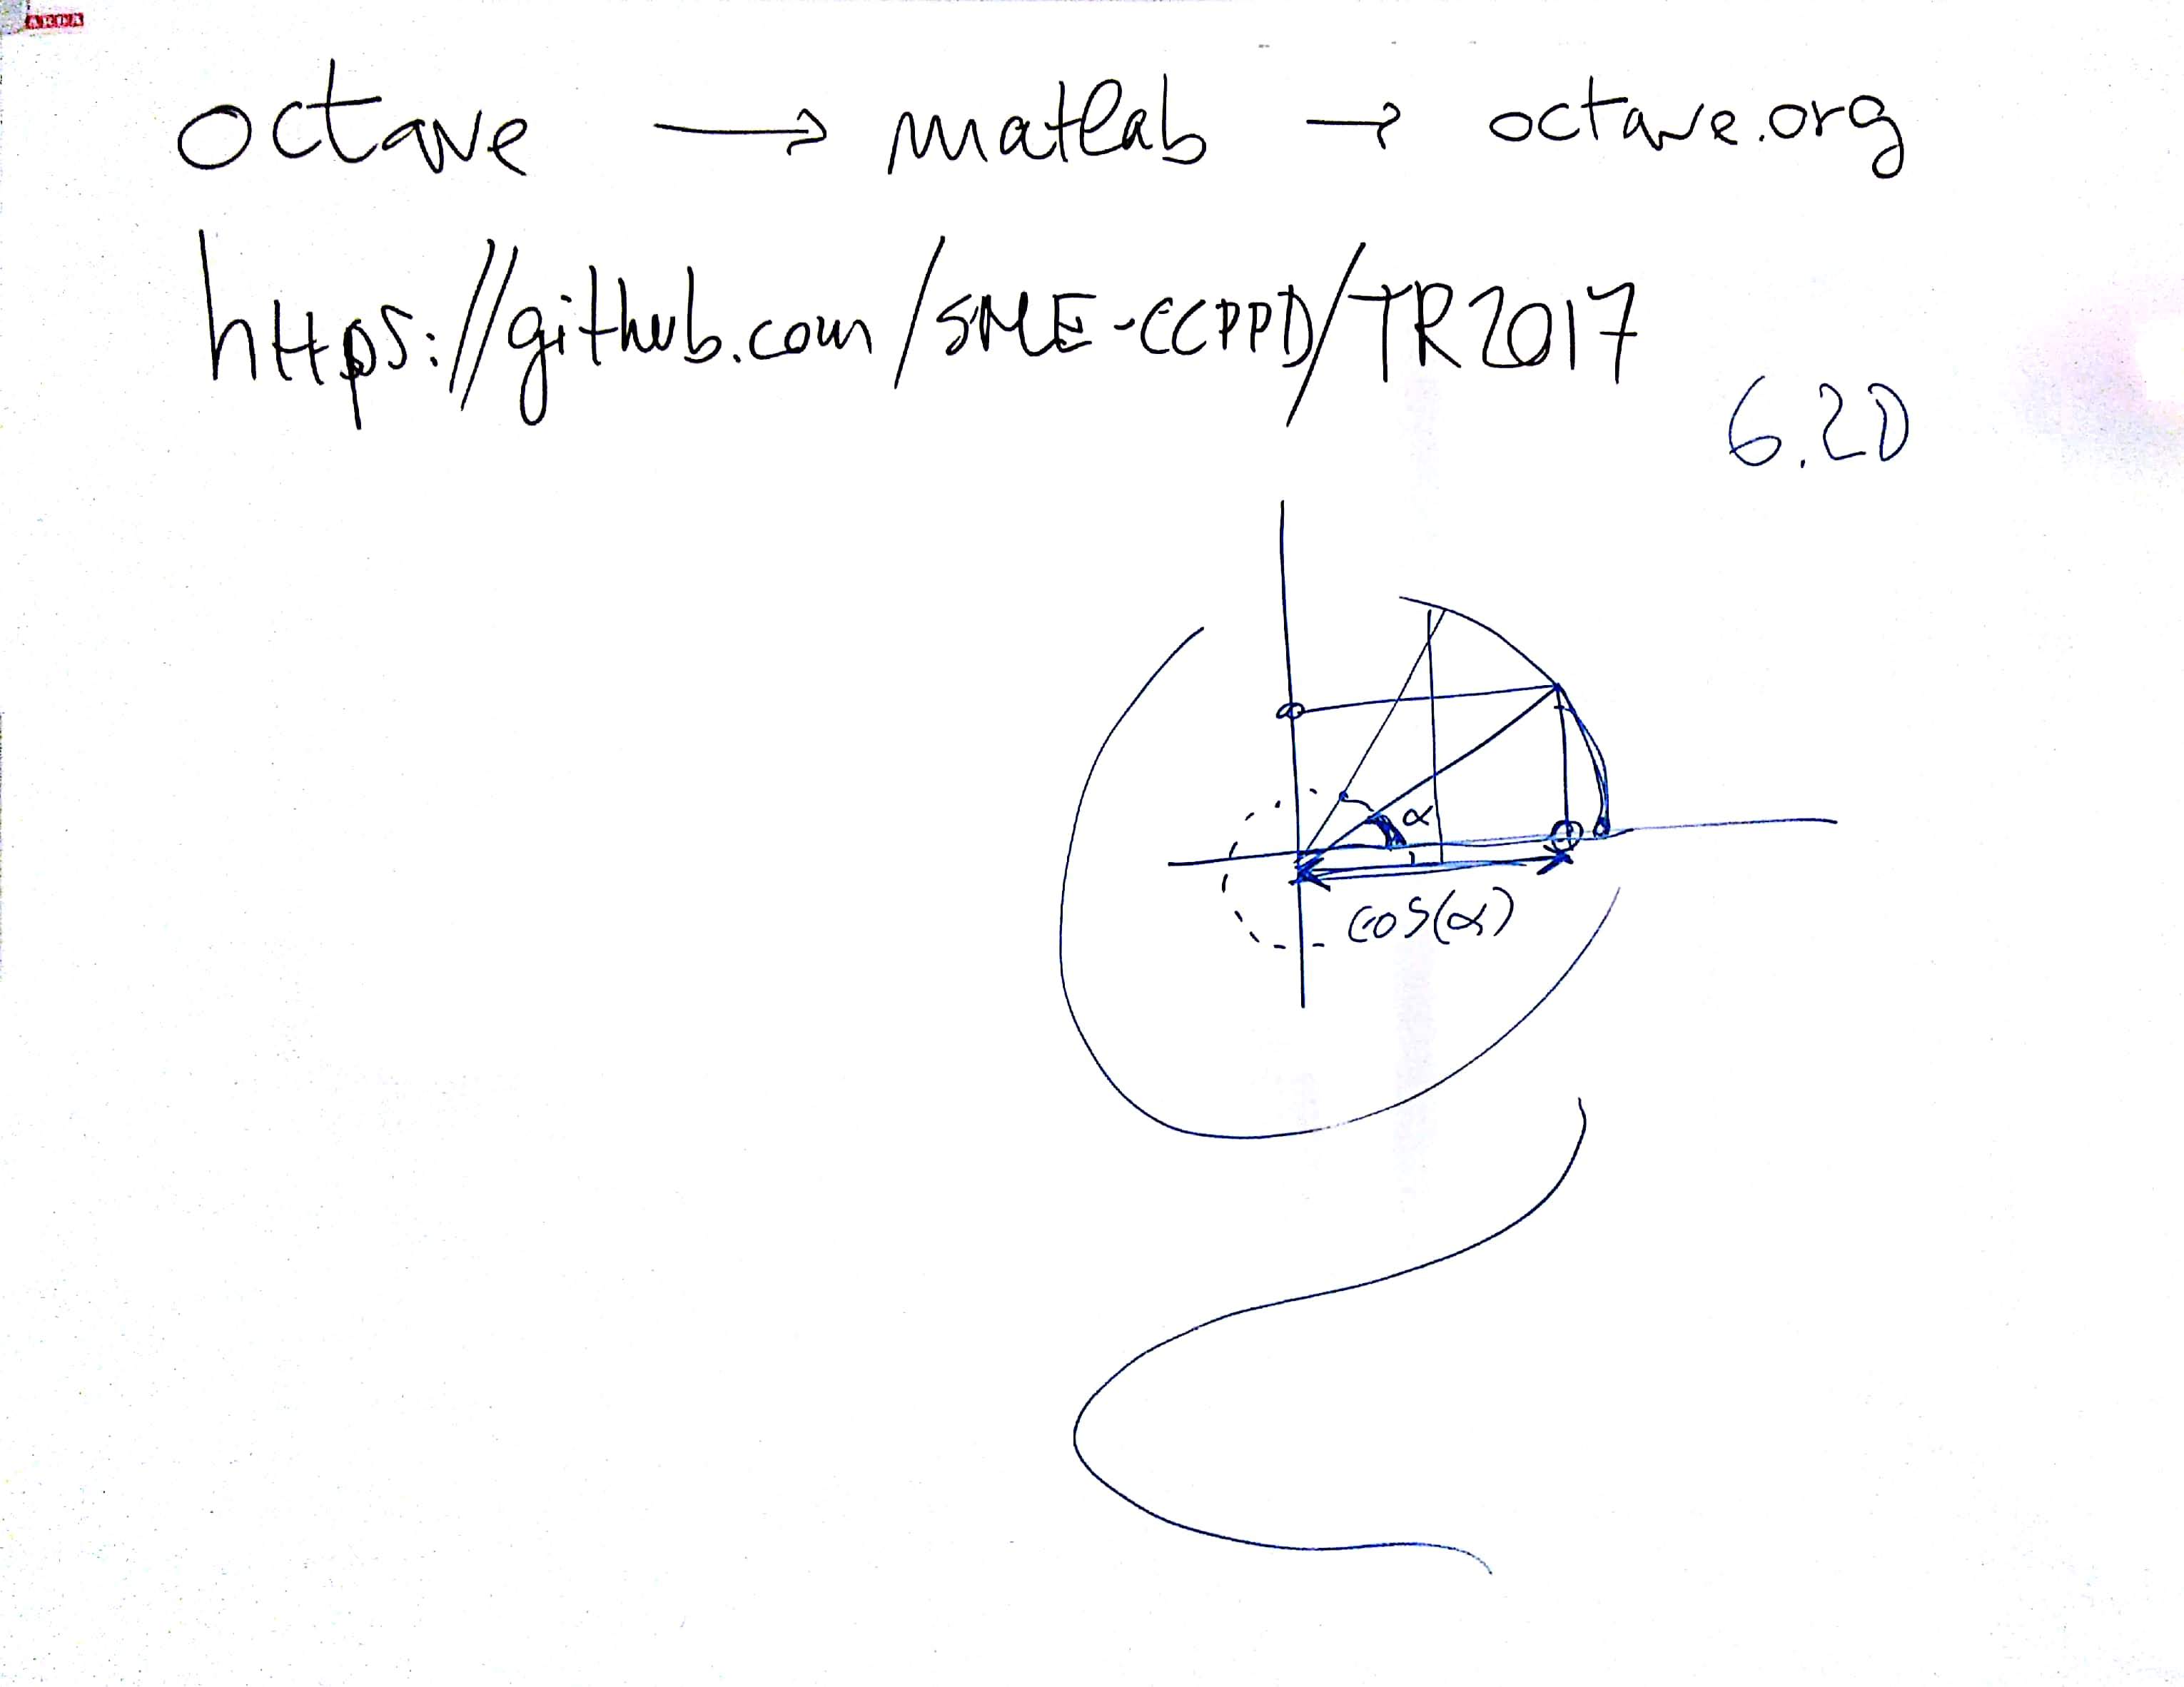 octave → matlab → octave.org
https://github.com/SME-CCPPD/TR2017
6.2D
α
cos(α)